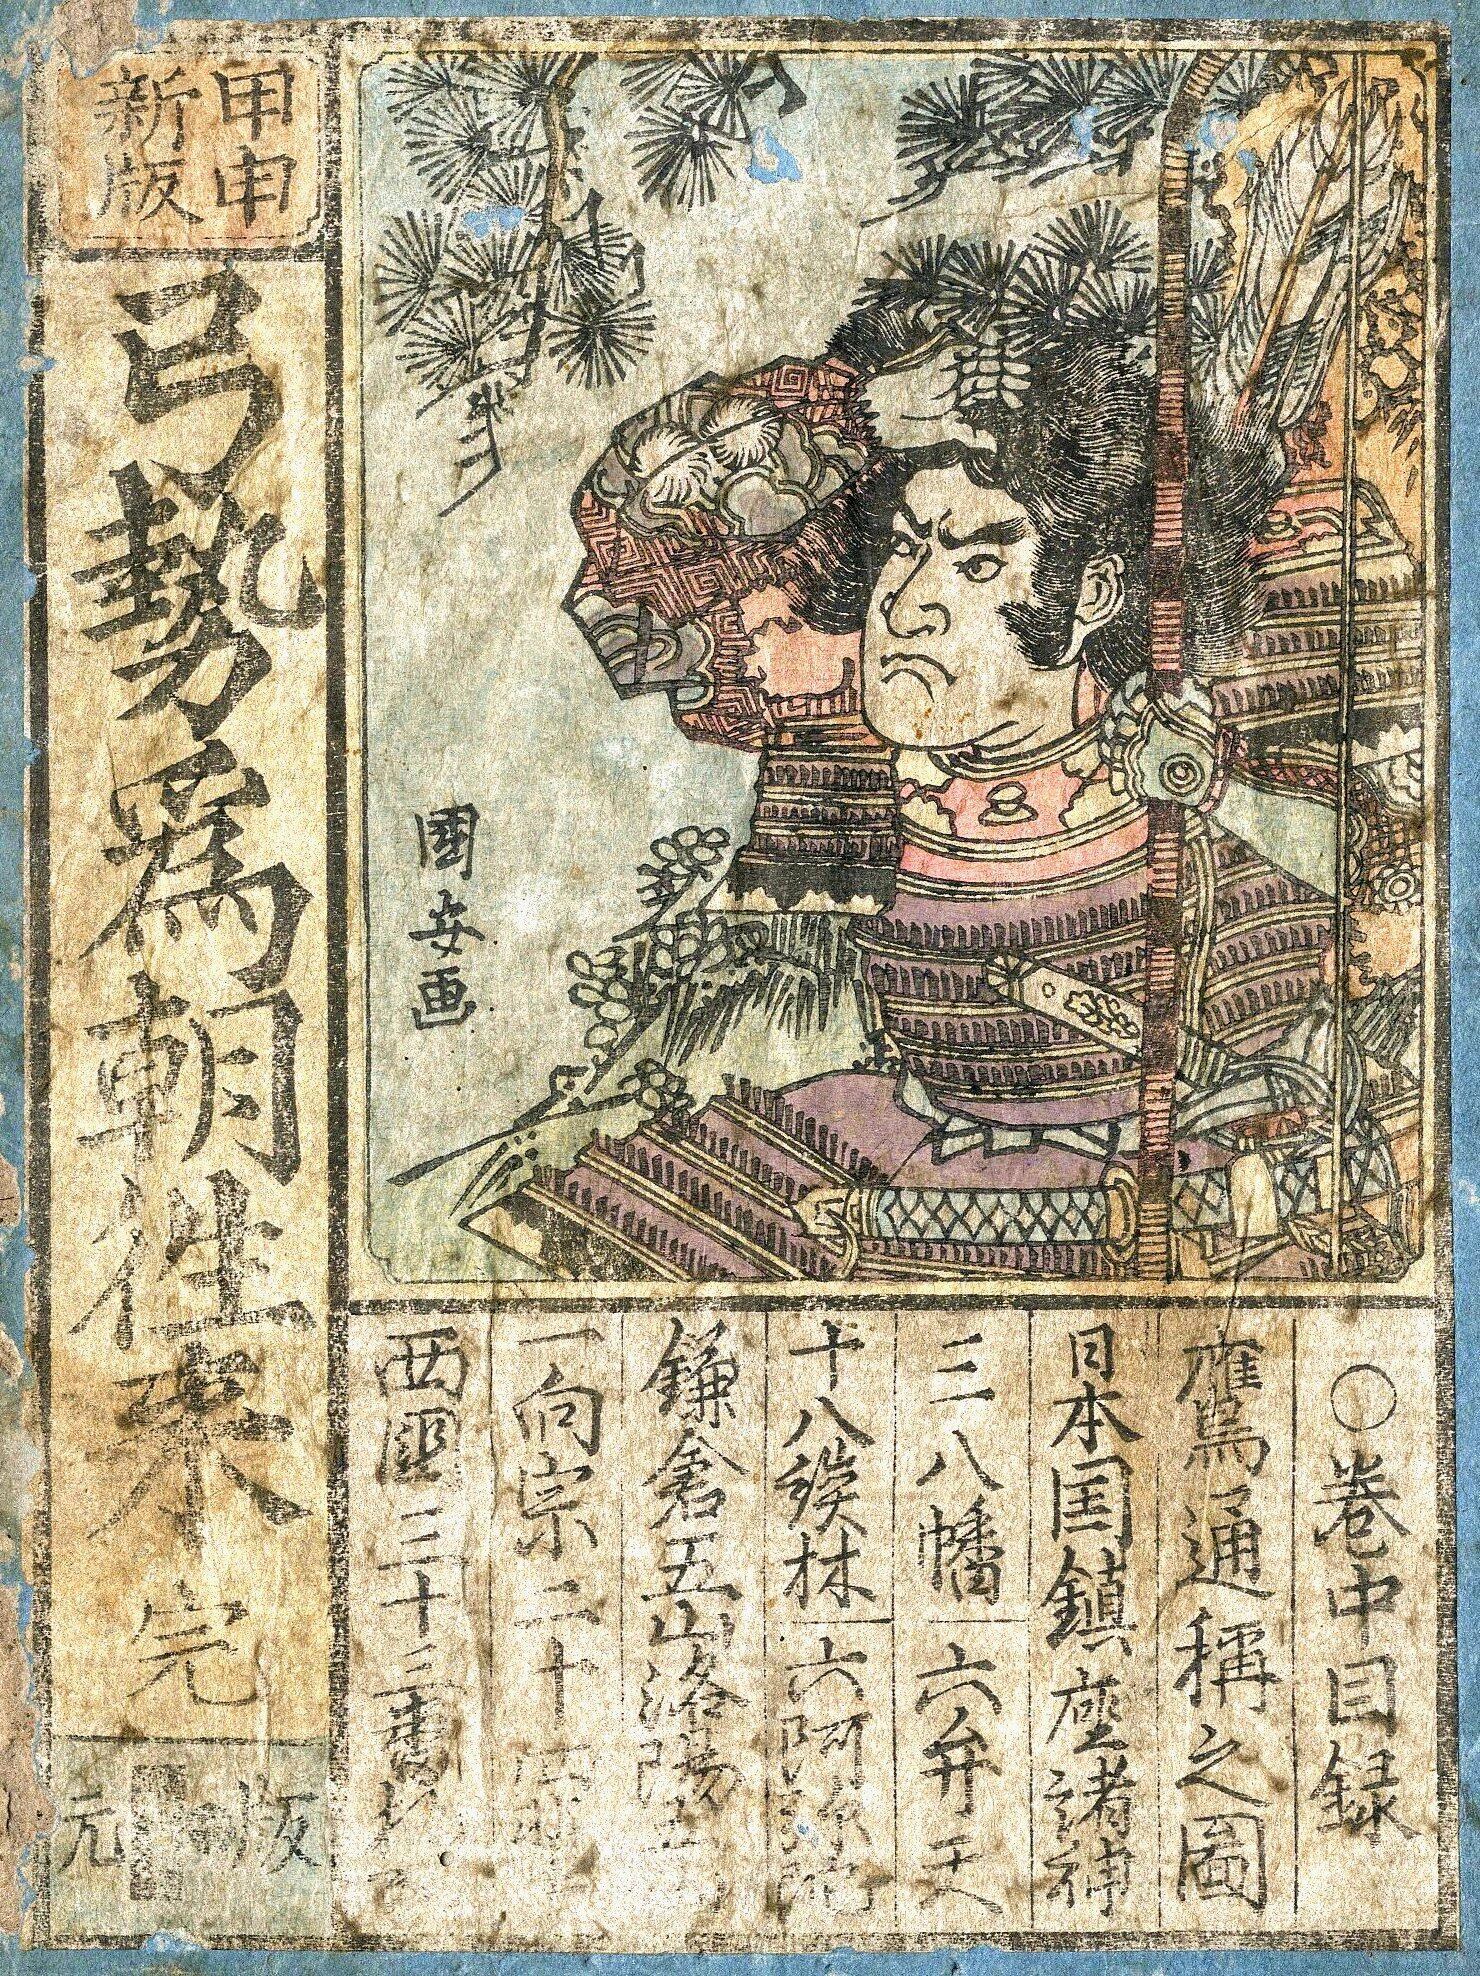 甲申
新版
弓勢為朝往来 完
版元
國安画
〇巻中目録
鷹通稱之圖
日本国鎮座諸神
三八幡
六弁天
十八檀林
六阿弥陀
鎌倉五山洛陽五山
一向宗二十四輩
西国三十三番